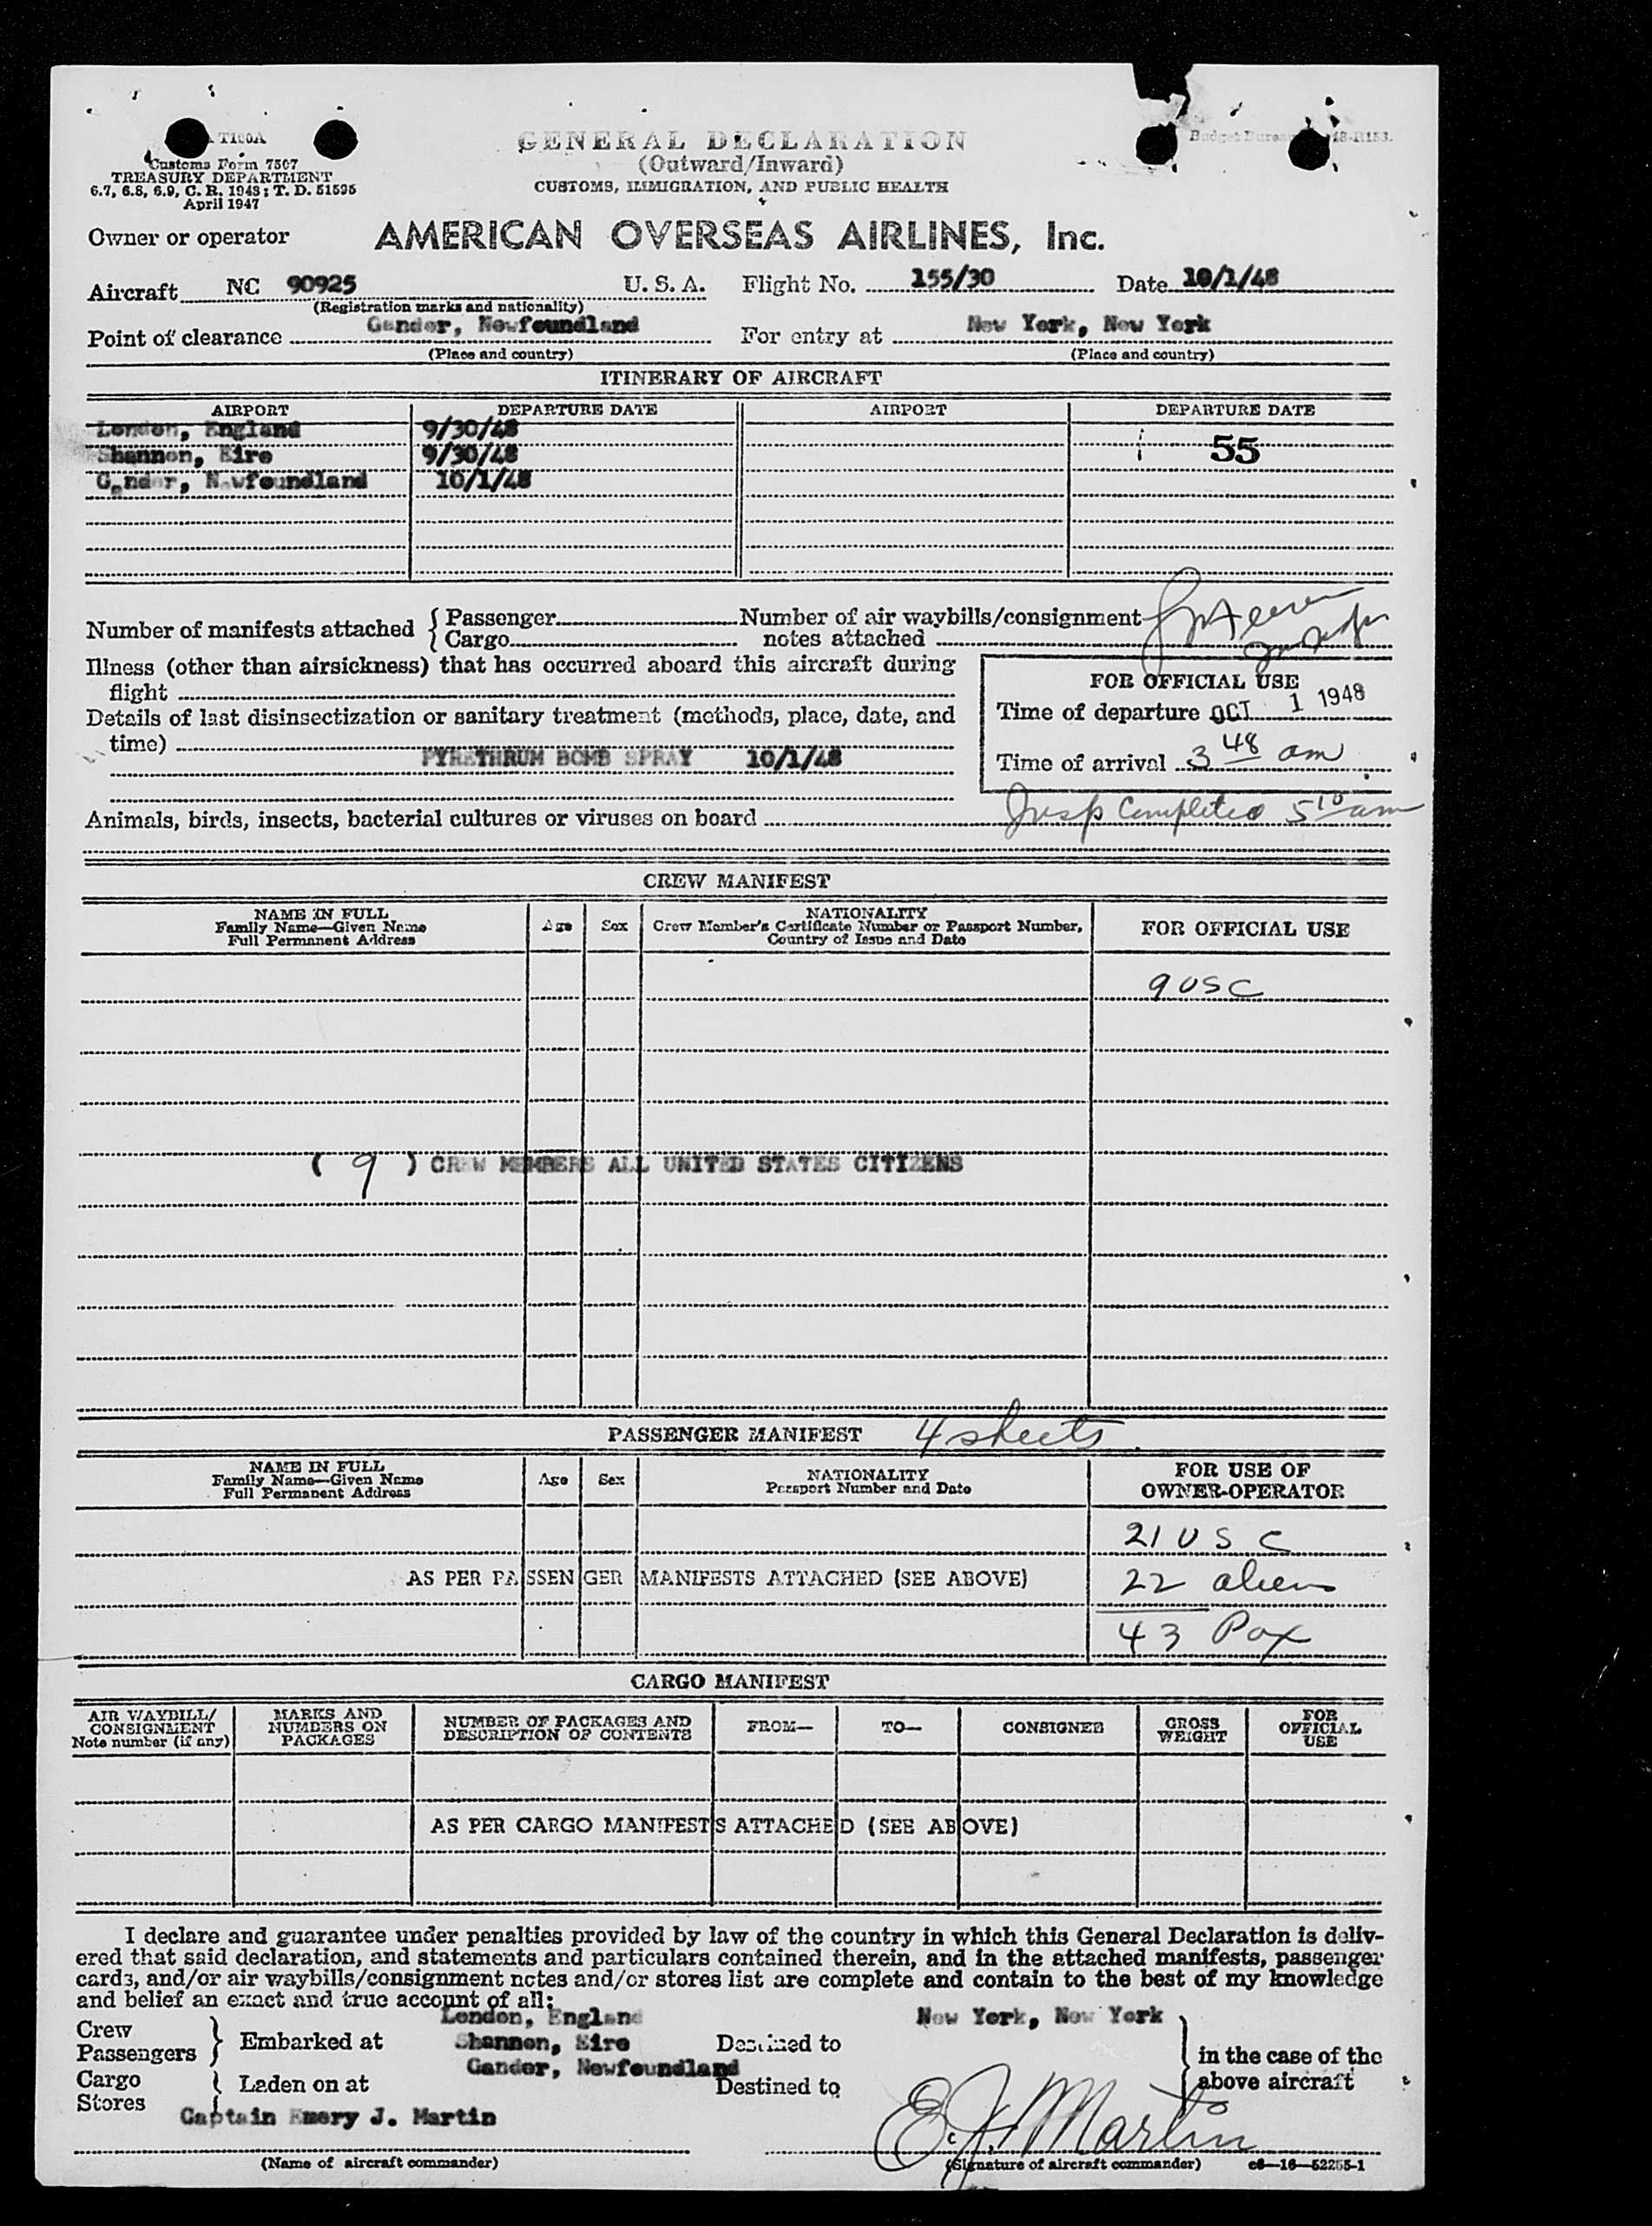 T100A
Customs Form 7507
TREASURY DEPARTMENT
6.7, 6.8, 6.9, C. R. 1943; T. D. 51595
April 1947
GENERAL DECLARATION
(Outward/Inward)
CUSTOMS, IMMIGRATION, AND PUBLIC HEALTH
Budget Bureau 48-R153.
Owner or operator AMERICAN OVERSEAS AIRLINES, Inc.
Aircraft NC 90925 U. S. A. Flight No. 155/30 Date 10/1/48
(Registration marks and nationality)
Point of clearance Gander, Newfoundland For entry at New York, New York
(Place and country) (Place and country)
ITINERARY OF AIRCRAFT
AIRPORT DEPARTURE DATE AIRPORT DEPARTURE DATE
London, England 9/30/48
Shannon, Eire 9/30/48 55
Gander, Newfoundland 10/1/48
Number of manifests attached { Passenger Number of air waybills/consignment
Cargo notes attached
Illness (other than airsickness) that has occurred aboard this aircraft during
flight
Details of last disinsectization or sanitary treatment (methods, place, date, and
time)
PYRETHRUM BOMB SPRAY 10/1/48
FOR OFFICIAL USE
Time of departure OCT 1 1948
Time of arrival 3 48 am
Insp Completed 5 10 am
Animals, birds, insects, bacterial cultures or viruses on board
CREW MANIFEST
NAME IN FULL
Family Name—Given Name
Full Permanent Address
Age
Sex
NATIONALITY
Crew Member's Certificate Number or Passport Number,
Country of Issue and Date
FOR OFFICIAL USE
9 USC
( 9 ) CREW MEMBERS ALL UNITED STATES CITIZENS
PASSENGER MANIFEST 4 sheets
NAME IN FULL
Family Name—Given Name
Full Permanent Address
Age
Sex
NATIONALITY
Passport Number and Date
FOR USE OF
OWNER-OPERATOR
21 U S C
AS PER PASSENGER MANIFESTS ATTACHED (SEE ABOVE) 22 aliens
43 Pax
CARGO MANIFEST
AIR WAYBILL/
CONSIGNMENT
Note number (if any)
MARKS AND
NUMBERS ON
PACKAGES
NUMBER OF PACKAGES AND
DESCRIPTION OF CONTENTS
FROM—
TO—
CONSIGNEE
GROSS
WEIGHT
FOR
OFFICIAL
USE
AS PER CARGO MANIFESTS ATTACHED (SEE ABOVE)
I declare and guarantee under penalties provided by law of the country in which this General Declaration is deliv-
ered that said declaration, and statements and particulars contained therein, and in the attached manifests, passenger
cards, and/or air waybills/consignment notes and/or stores list are complete and contain to the best of my knowledge
and belief an exact and true account of all:
London, England New York, New York
Crew
Passengers } Embarked at Shannon, Eire Destined to
Gander, Newfoundland
in the case of the
above aircraft
Cargo
Stores } Laden on at Destined to
Captain Emery J. Martin E. J. Martin
(Name of aircraft commander) (Signature of aircraft commander) c6—16—52255-1